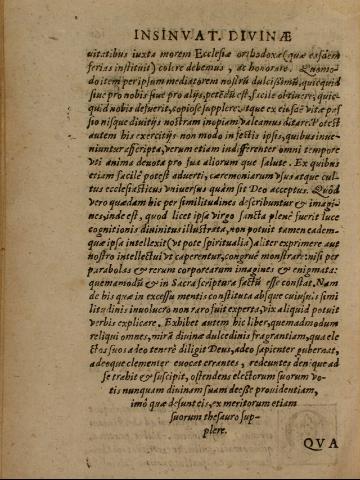 INSINVAT. DIVINÆ
uitatibus iuxta morem Ecclesiæ orthodoxæ (quæ easdem
ferias instituit) colere debemus, ac honorare. Quomo-
do item per ipsum mediatorem nostrũ dulcissimũ, quicquid
siue pro nobis siue pro alijs, petẽdũ est, facile obtinere, quic-
quid nobis defuerit, copiosè supplere: atque ex eiusdẽ vitæ pas
sio nisque diuitijs nostram inopiam valeamus ditare. Potest
autem his exercitijs non modo in festis ipsis, quibus inue-
niuntur asscripta, verum etiam indifferenter omni tempore
vti anima deuota pro sua aliorum que salute. Ex quibus
etiam facilè potest aduerti, cæremoniarum vsus atque cul-
tus ecclesiasticus vniuersus quàm sit Deo acceptus. Quòd
vero quædam hic per similitudines describuntur & imagi-
nes, inde est, quod licet ipsa virgo sancta plenè fuerit luce
cognitionis diuinitus illustrata, non potuit tamen eadem-
quæ ipsa intellexit (vt pote spiritualia) aliter exprimere aut
nostro intellectui vt caperentur, congruè monstrare: nisi per
parabolas & rerum corporearum imagines & enigmata:
quemamodũ & in Sacra scriptura factũ esse constat. Nam
de his quæ in excessu mentis constituta absque cuiusuis simi
litudinis inuolucro non raro fuit experta, vix aliquid potuit
verbis explicare. Exhibet autem hic liber, quemadmodum
reliqui omnes, mirã diuinæ dulcedinis fragrantiam, qua ele
ctos suos adeo tenerè diligit Deus, adeo sapienter gubernat,
adeoque clementer euocet errantes, redeuntes denique ad
se trahit & suscipit, ostendens electorum suorum vo-
tis nunquam diuinam suam deesse prouidentiam,
imò quæ desunt eis, ex meritorum etiam
suorum thesauro sup-
plere.
QVA